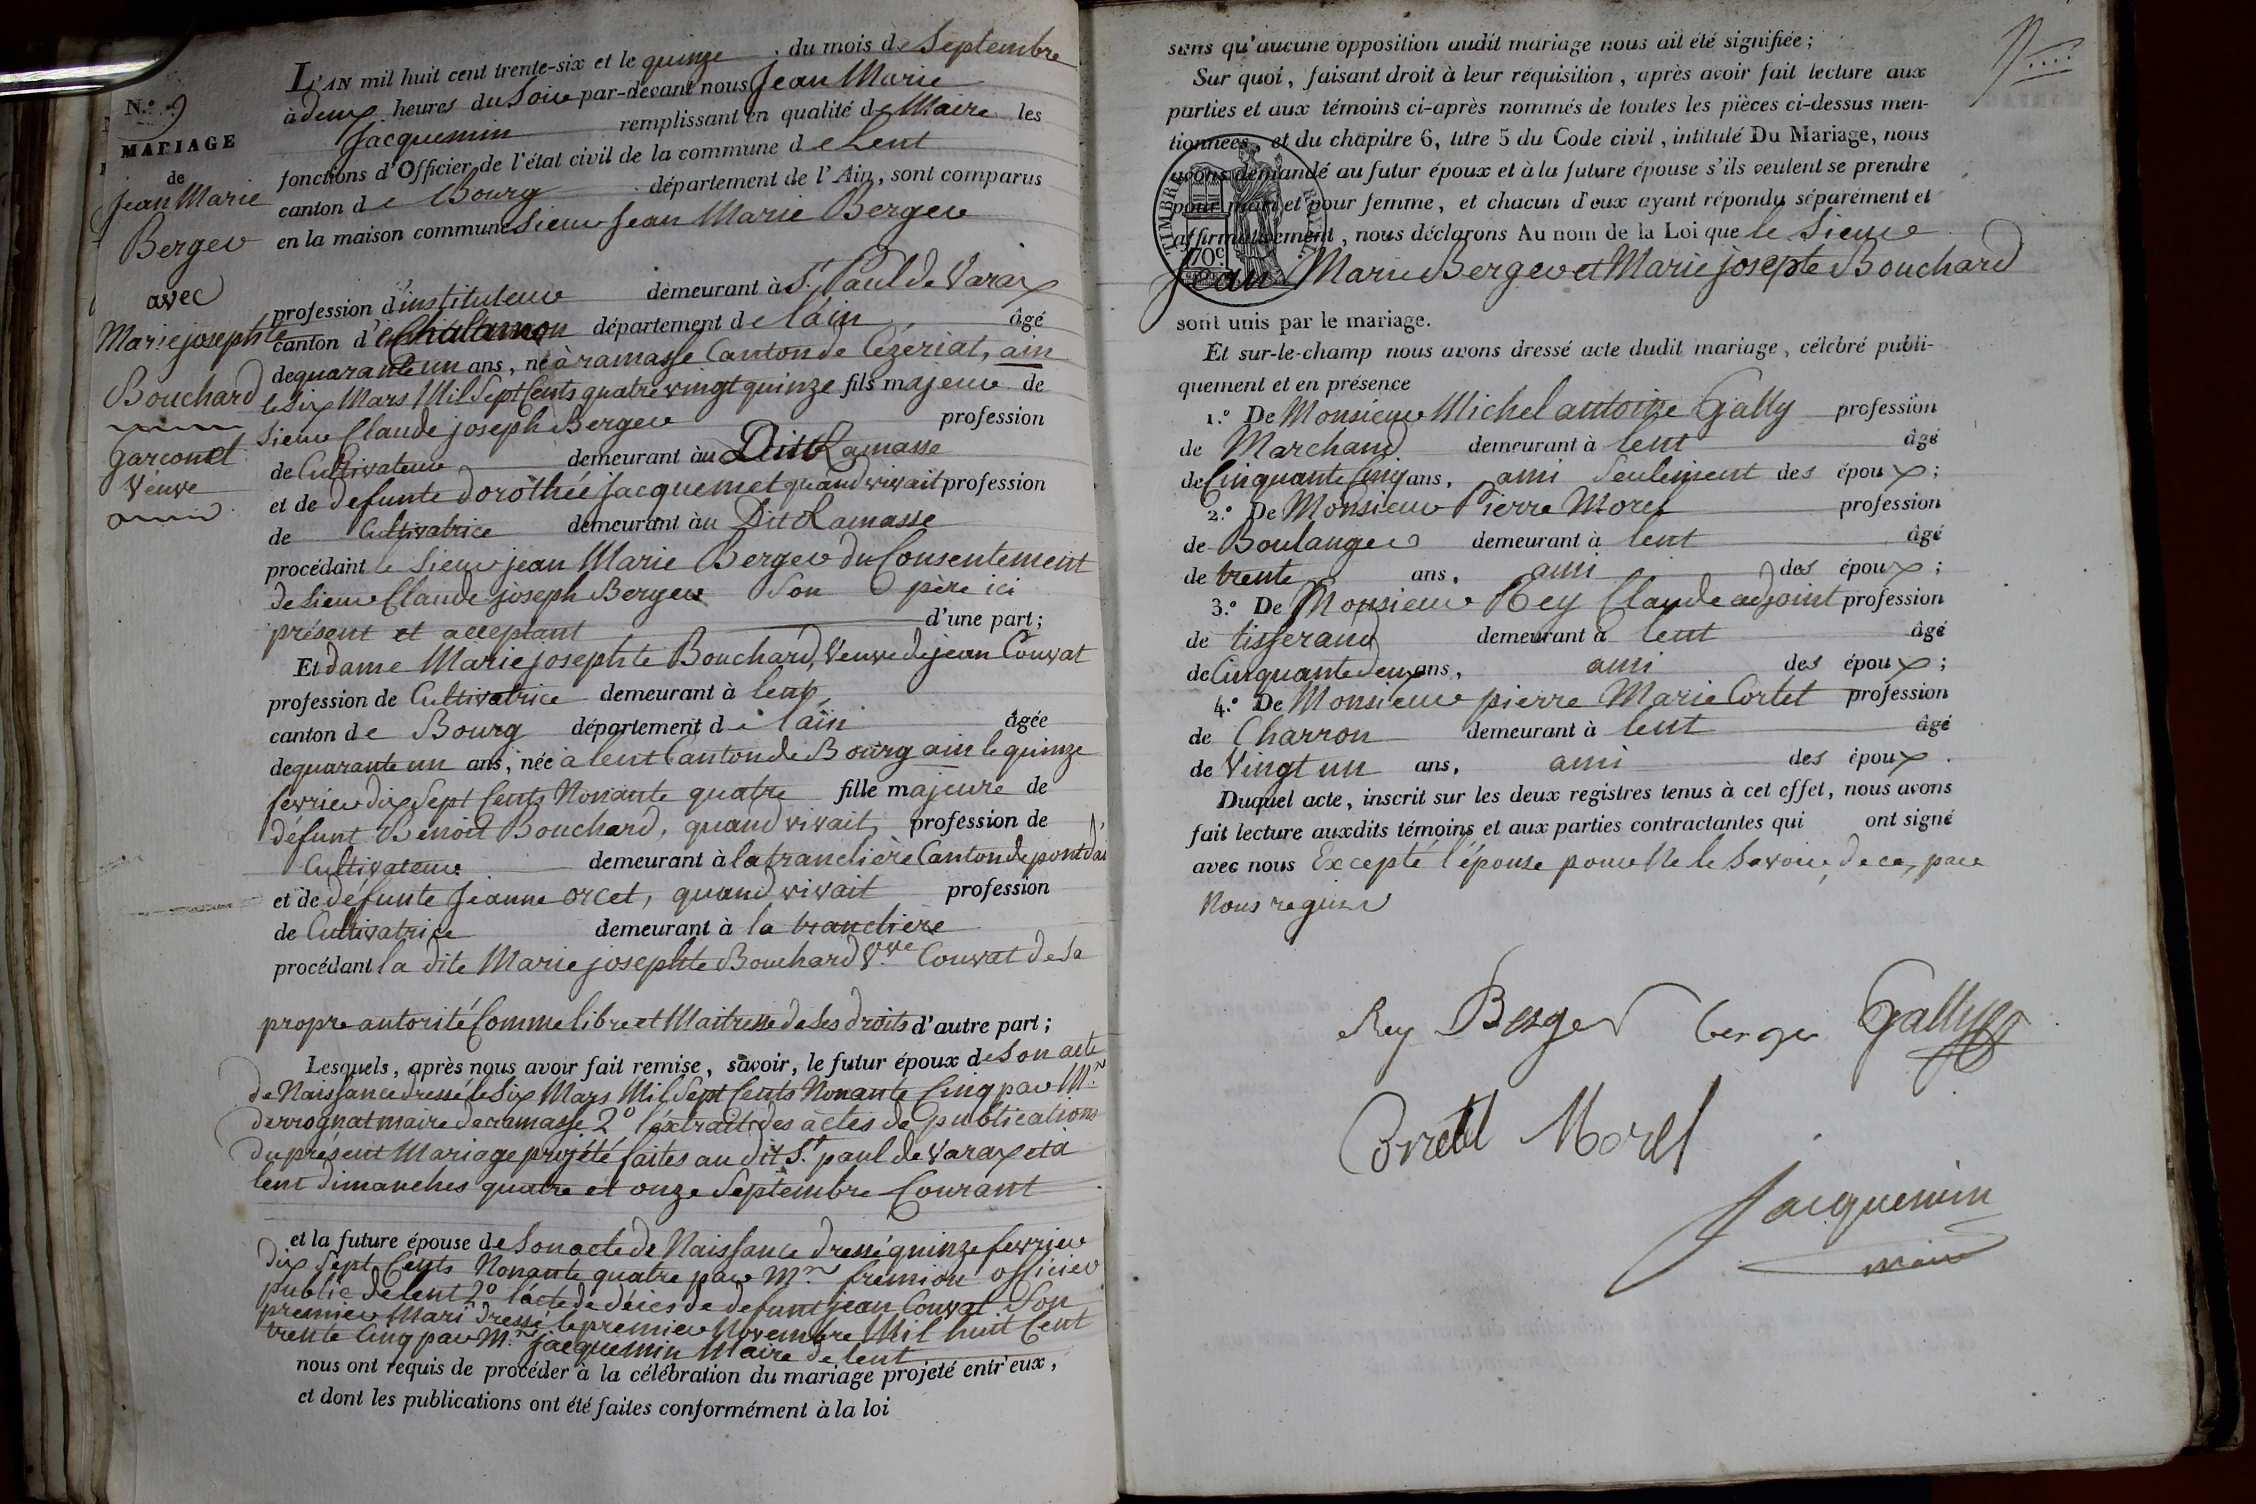 L'AN mil huit cent trente-six et le quinze du mois de Septembre
à deux heures du Soir par-devant nous Jean Marie
Jacquemin remplissant en qualité de Maire les
fonctions d'Officier de l'état civil de la commune de Lent
canton de Bourg département de l'Ain, sont comparus
en la maison commune Sieur Jean Marie Berger
profession d'instituteur demeurant à St. Paul de Varax
canton de Chalamon département de lain âgé
de quarante un ans, né à ramasse Canton de Cézériat, ain
le Six Mars Mil Sept Cents quatre vingt quinze fils majeur de
Sieur Claude joseph Berger profession
de Cultivateur demeurant àu Dit Ramasse
et de defunte dorothée Jacquemet quand vivait profession
de Cultivatrice demeurant àu Dit Ramasse
procédant le Sieur jean Marie Berger du Consentement
de Sieur Claude joseph Berger Son père ici
présent et acceptant d'une part;
Et dame Marie josephte Bouchard, Veuve de jean Couvat
profession de Cultivatrice demeurant à lent
canton de Bourg département de lain âgée
de quarante un ans, née à lent Canton de Bourg ain le quinze
fevrier dix Sept Cents Nonante quatre fille majeure de
défunt Benoit Bouchard, quand vivait, profession de
Cultivateur demeurant à la tranclière Canton de pont d'ai
et de défunte Jeanne orcet, quand vivait profession
de Cultivatrice demeurant à la tranclière
procédant la dite Marie josephte Bouchard Vve Couvat de Sa
propre autorité Comme libre et Maitresse de Ses droits d'autre part;
Lesquels, après nous avoir fait remise, savoir, le futur époux de Son acte
de Naissance dressé le Six Mars Mil Sept Cents Nonante Cinq par Mr
derrognat maire de ramasse 2o l'extrait des actes de publications
du présent Mariage projété faites au dit St. paul de Varax et à
lent dimanches quatre et onze Septembre Courant
et la future épouse de Son acte de Naissance dressé quinze fevrier
dix Sept Cents Nonante quatre par Mr fremion officier
public de lent 2o l'acte de décès de defunt jean Couvat Son
premier Mari dressé le premier Novembre Mil huit Cent
trente Cinq par Mr jacquemin Maire de lent
nous ont requis de procéder à la célébration du mariage projeté entr'eux,
et dont les publications ont été faites conformément à la loi
N.o 9
MARIAGE
de
Jean Marie
Berger
avec
Marie josephte
Bouchard
Garçon et
Veuve
sans qu'aucune opposition audit mariage nous ait été signifiée;
Sur quoi, faisant droit à leur réquisition, après avoir fait lecture aux
parties et aux témoins ci-après nommés de toutes les pièces ci-dessus men-
tionnées, et du chapitre 6, titre 5 du Code civil, intitulé Du Mariage, nous
avons demandé au futur époux et à la future épouse s'ils veulent se prendre
pour mari et pour femme, et chacun d'eux ayant répondu séparément et
affirmativement, nous déclarons Au nom de la Loi que le Sieur
Jean Marie Berger et Marie josepte Bouchard
sont unis par le mariage.
Et sur-le-champ nous avons dressé acte dudit mariage, célébré publi-
quement et en présence
1.o De Monsieur Michel antoine Gally profession
de Marchand demeurant à lent âgé
de Cinquante Cinq ans, ami Seulement des époux;
2.o De Monsieur Pierre Morel profession
de Boulanger demeurant à lent âgé
de trente ans, ami des époux;
3.o De Monsieur Rey Claude adjoint profession
de tisserand demeurant à lent âgé
de Cinquante deux ans, ami des époux;
4.o De Monsieur pierre Marie Cortet profession
de Charron demeurant à lent âgé
de Vingt un ans, ami des époux.
Duquel acte, inscrit sur les deux registres tenus à cet effet, nous avons
fait lecture auxdits témoins et aux parties contractantes qui ont signé
avec nous Excepté l'épouse pour Ne le Savoir, de ce, par
Nous requise
Rey Berger berger Gally
Morel
Jacquemin
maire
TIMBRE ROYAL
70c